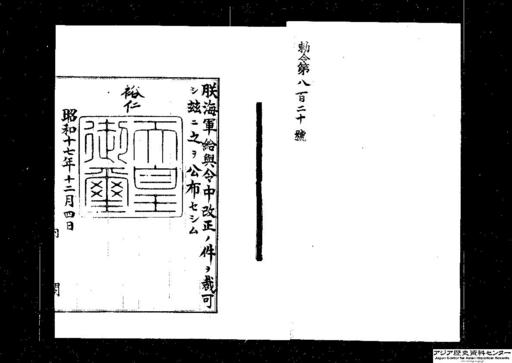 勅令第八百二十號
朕海軍給與令中改正ノ件ヲ裁可
シ茲ニ之ヲ公布セシム
裕仁
天皇御璽
昭和十七年十二月四日
内閣
アジア歴史資料センター
Japan Center for Asian Historical Records